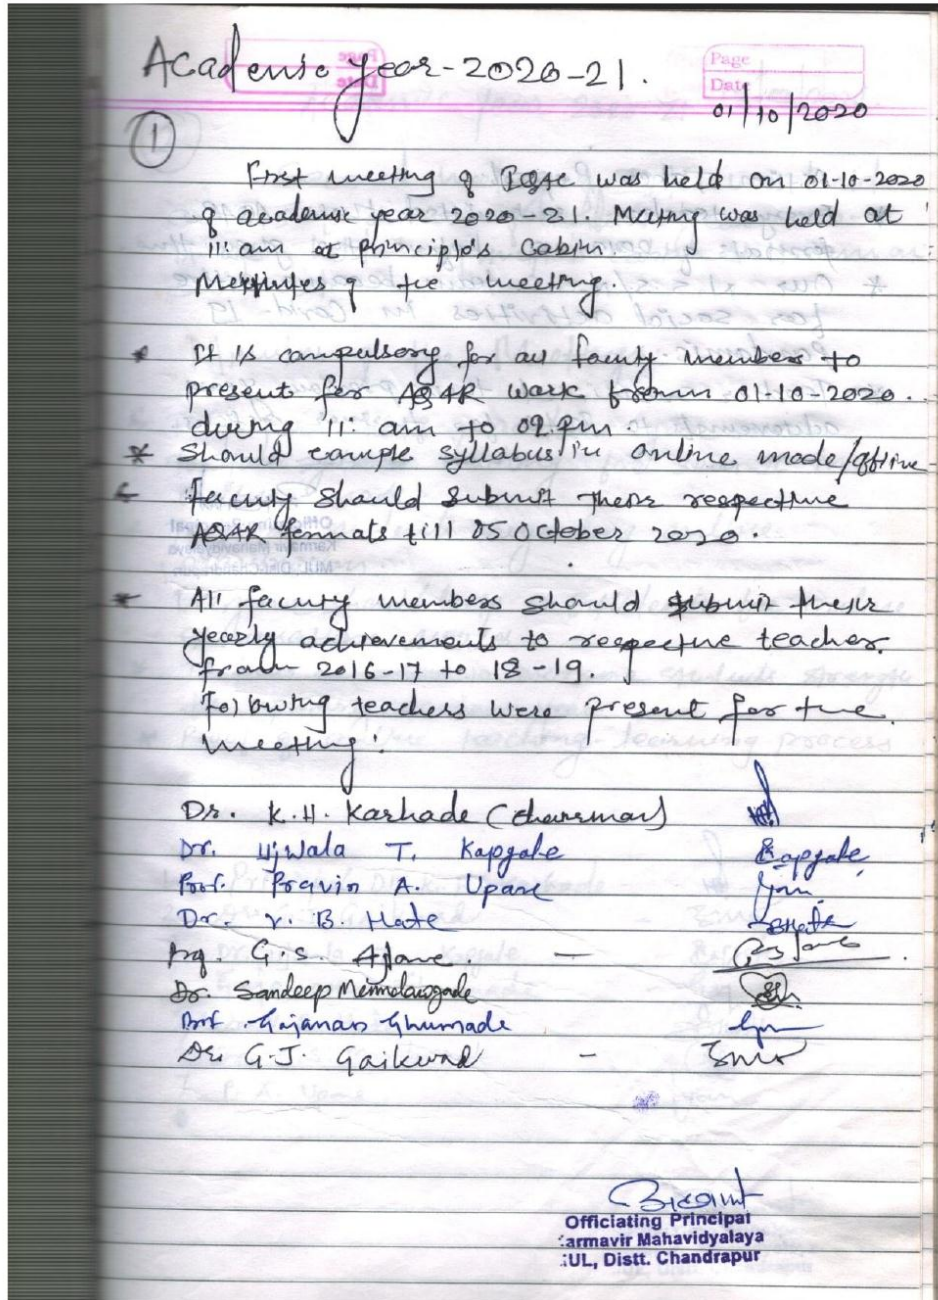 Academic year-2020-21.
Page
Date
01/10/2020
1
First meeting of IQAC was held on 01-10-2020
of academic year 2020-21. Meeting was held at
11: am at principlo's Cabin
of the meeting.
* It is compulsory for all faculty members to
present for AQAR work from 01-10-2020.
during 11: am to 02.pm.
* Should comple syllabus in online mode/offline
Faculty should submit theirs respective
AQAR formats till 05 October 2020.
* All faculty members should submit their
yearly achievements to respective teacher.
from 2016-17 to 18-19.
Following teachers were present for the
meeting:
Dr. K.H. Karhade (Chairman)
Dr. Ujwala T. Kapgate Kapgate
Prof. Pravin A. Upare
Dr. V. B. Hate
G.S. Aglave. —
Dr. Sandeep
Prof. Gajanan Ghumade
Dr. G.J. Gaikwad —
Officiating Principal
armavir Mahavidyalaya
UL, Distt. Chandrapur